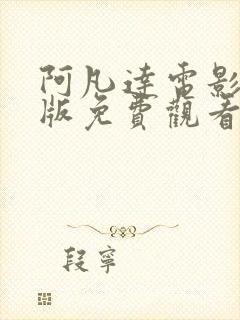 阿凡達電影
版免費觀看
段寧